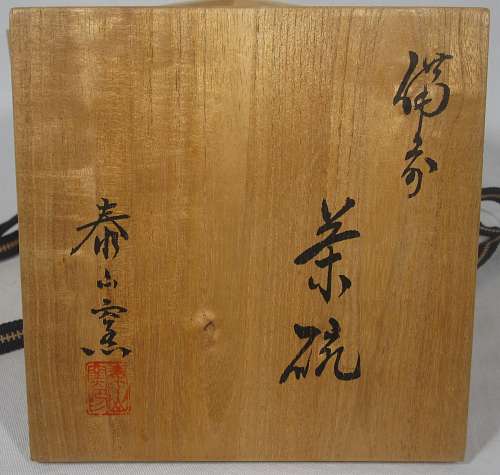 備前
茶碗
泰山窯